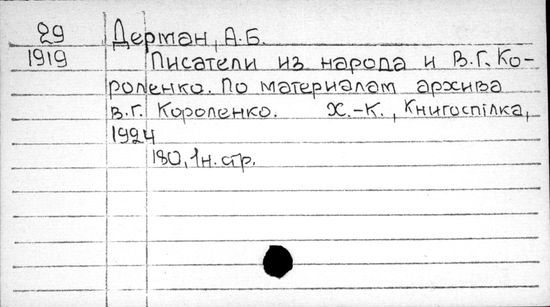 29 Дерман, А.Б.
1919 Писатели из народа и В.Г. Ко-
роленко. По материалам архива
В.Г. Короленко. Х.-К., Книгоспілка,
1924
180, 1н. стр.